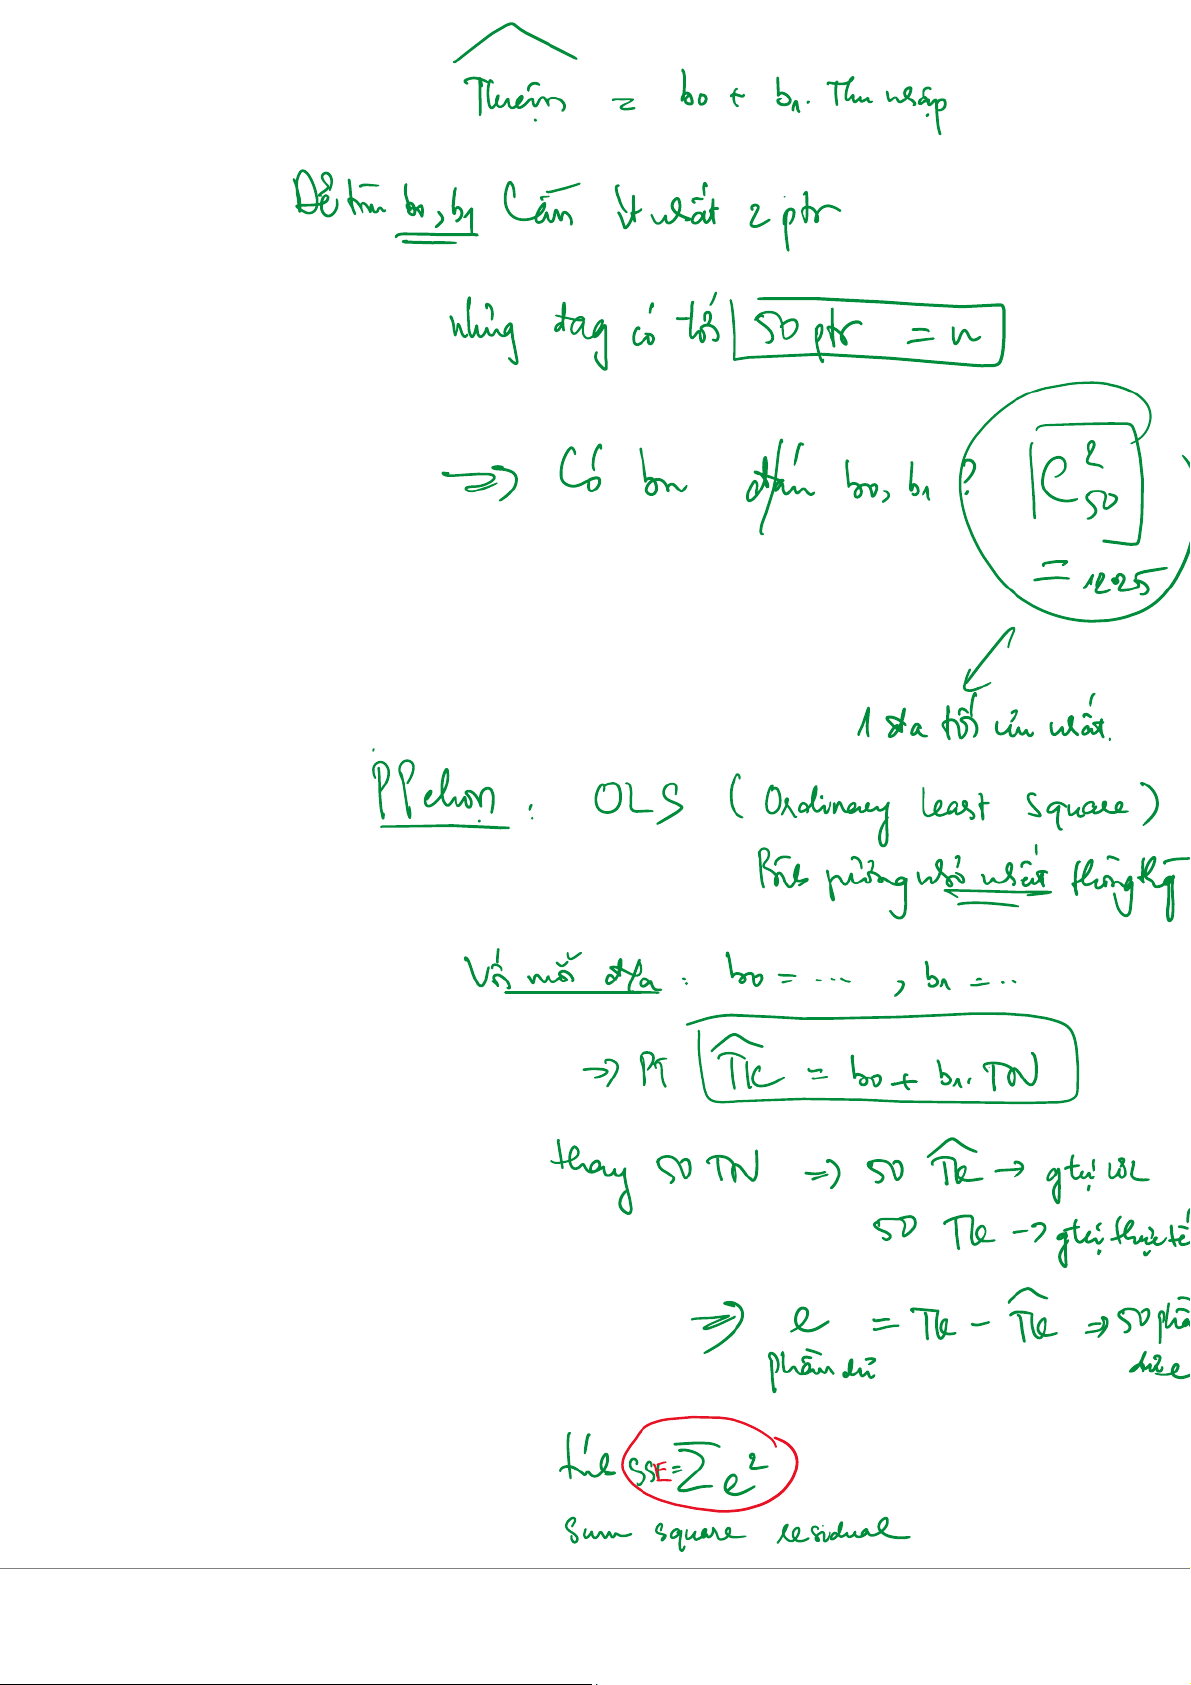 Thuện = b0 + b1. Thu nhập
Để tìm b0, b1 Cần ít nhất 2 ptr
nhưng đag có tới 50 ptr = n
=> Có bn đ/án b0, b1? C²₅₀
= 1225
1 đ/a tối ưu nhất.
PP chọn : OLS ( Ordinary least square )
Bình phương nhỏ nhất thông thg
Với mỗi đ/a : b0 = ... , b1 = ..
→ PT T̂K = b0 + b1. TN
thay 50 TN => 50 T̂K → gtrị ƯL
50 TK → gtrị thực tế
=> e = TK - T̂K => 50 phầ
phần dư dư e
tính SSE = Σe²
Sum square residual